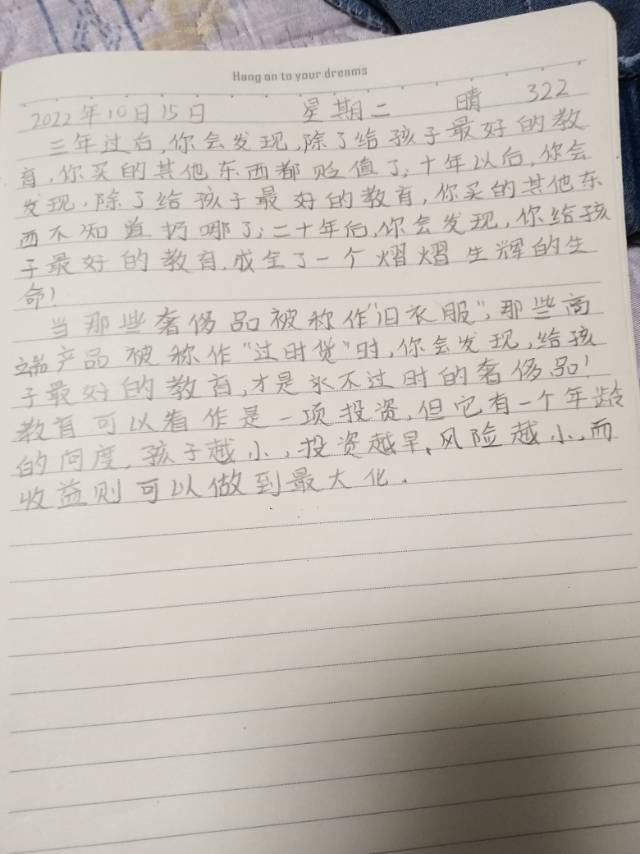 Hang on to your dreams
2022年10日15日 星期二 晴 322
三年过后,你会发现,除了给孩子最好的教
育,你买的其他东西都贬值了,十年以后,你会
发现,除了给孩子最好的教育,你买的其他东
西不知道扔哪了;二十年后,你会发现,你给孩
子最好的教育,成全了一个熠熠生辉的生
命!
当那些奢侈品被称作“旧衣服”,那些高
端产品被称作“过时货”时,你会发现,给孩
子最好的教育,才是永不过时的奢侈品!
教育可以看作是一项投资,但它有一个年龄
的问度,孩子越小,投资越早,风险越小,而
收益则可以做到最大化.